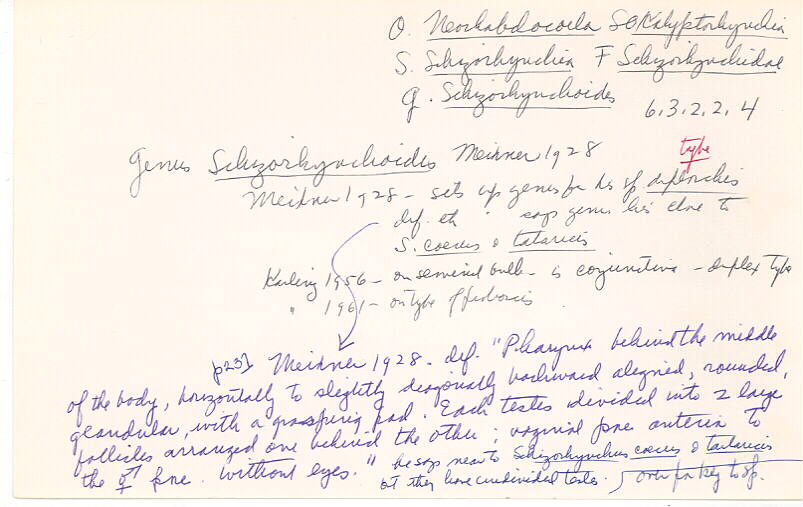 O. Neorhabdocoela SO Kalyptorhynchia
S. Schizorhynchia F Schizorhynchidae
g. Schizorhynchoides
6.3.2.2.4
Genus Schizorhynchoides Meixner 1928
type
Meixner 1928 - sets up genus for his sp.
def. etc says genus lies close to
S. coecus & tataricus
Karling 1956 - on seminal bulb - is conjunctiva - duplex type
" 1961 - on type of proboscis
p 231 Meixner 1928. def. "Pharynx behind the middle
of the body, horizontally to slightly diagonally backward aligned, rounded,
glandular, with a grasping pad. Each testes divided into 2 large
follicles arranged one behind the other; vaginal pore anterior to
the ⚥ pore. Without eyes."
he says near to Schizorhynchus coecus & tataricus
but they have undivided testes. over for key to sp.